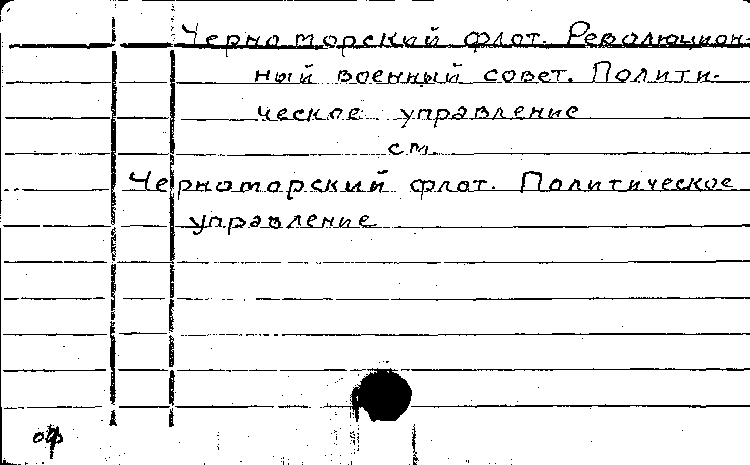 Черноморский флот. Революцион-
ный военный совет. Полити-
ческое управление
см.
Черноморский флот. Политическое
управление
оф